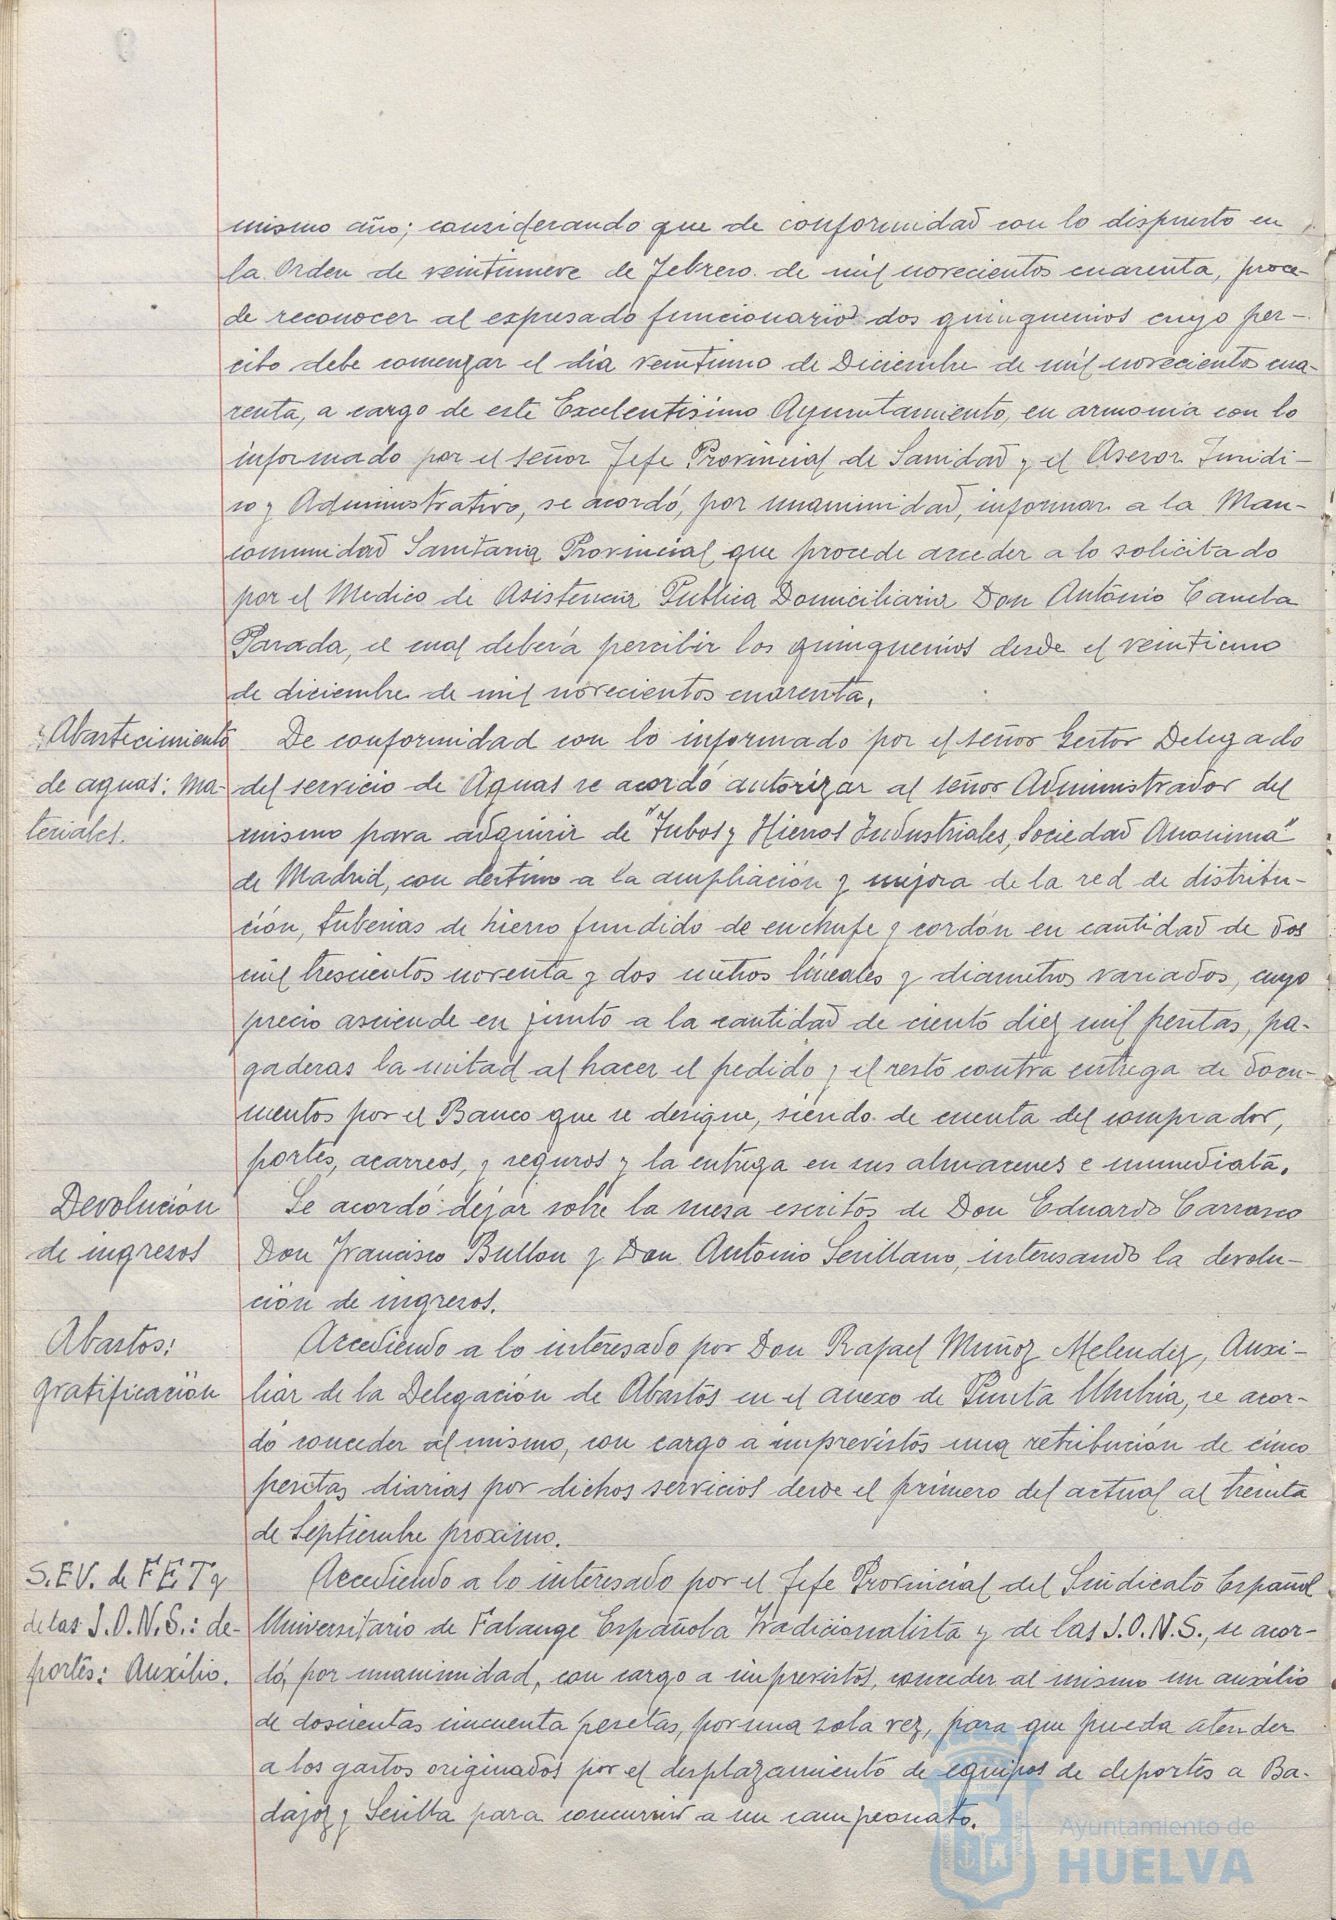 mismo año; considerando que de conformidad con lo dispuesto en
la Orden de veintinueve de Febrero de mil novecientos cuarenta, proce-
de reconocer al expresado funcionario dos quinquenios cuyo per-
cibo debe comenzar el día veintiuno de Diciembre de mil novecientos cua-
renta, a cargo de este Excelentisimo Ayuntamiento, en armonia con lo
informado por el señor Jefe Provincial de Sanidad y el Asesor Juridi-
co y Administrativo, se acordó, por unanimidad, informar a la Man-
comunidad Sanitaria Provincial que procede acceder a lo solicitado
por el Medico de Asistencia Publica Domiciliaria Don Antonio Canela
Parada, el cual deberá percibir los quinquenios desde el veintiuno
de diciembre de mil novecientos cuarenta.
Abastecimiento
de aguas: Ma-
teriales.
De conformidad con lo informado por el señor Gestor Delegado
del servicio de Aguas se acordó autorizar al señor Administrador del
mismo para adquirir de "Tubos y Hierros Industriales, Sociedad Anonima"
de Madrid, con destino a la ampliación y mejora de la red de distribu-
ción, tuberias de hierro fundido de enchufe y cordón en cantidad de dos
mil trescientos noventa y dos metros líneales y diametros variados, cuyo
precio asciende en junto a la cantidad de ciento diez mil pesetas, pa-
gaderas la mitad al hacer el pedido y el resto contra entrega de docu-
mentos por el Banco que se designe, siendo de cuenta del comprador,
portes, acarreos, y seguros y la entrega en sus almacenes e inmediata.
Devolución
de ingresos
Se acordó dejar sobre la mesa escritos de Don Eduardo Carrasco
Don Francisco Bullon y Don Antonio Sevillano, interesando la devolu-
ción de ingresos.
Abastos:
gratificación
Accediendo a lo interesado por Don Rafael Muñoz Melendez, Auxi-
liar de la Delegación de Abastos en el anexo de Punta Umbria, se acor-
dó conceder al mismo, con cargo a imprevistos una retribución de cinco
pesetas diarias por dichos servicios desde el primero del actual al treinta
de Septiembre proximo.
S.E.U. de F E T y
de las J.O.N.S.: de-
portes: Auxilio.
Accediendo a lo interesado por el Jefe Provincial del Sindicato Español
Universitario de Falange Española Tradicionalista y de las J.O.N.S., se acor-
dó, por unanimidad, con cargo a imprevistos, conceder al mismo un auxilio
de doscientas cincuenta pesetas, por una sola vez, para que pueda atender
a los gastos originados por el desplazamiento de equipos de deportes a Ba-
dajoz y Sevilla para concurrir a un campeonato.
Ayuntamiento de
HUELVA